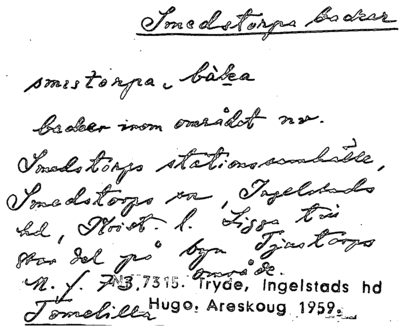 Smedstorps backar
smɛstorpa, bàka
backar inom området nv.
Smedstorps stationssamhälle,
Smedstorps sn, Ingelstads
hd, Krist. l. Ligga till
stor del på byn Tjustorps
område.
N. f. 73,7315. Tryde, Ingelstads hd
Tomelilla Hugo Areskoug 1959.